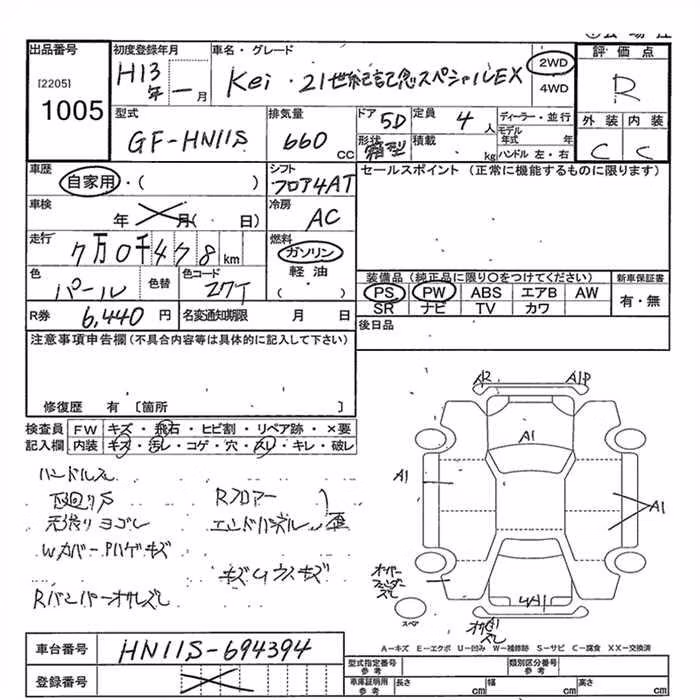 出品番号
[2205]
1005
初度登録年月
H13年 一月
車名・グレード
Kei・21世紀記念スペシャルEX
2WD
4WD
評価点
R
外装 内装
C C
型式
GF-HN11S
排気量
660 CC
ドア 5D
形状 箱型
定員 4人
積載 kg
ディーラー・並行
モデル年式 年
ハンドル 左・右
車歴
自家用・( )
シフト
フロア4AT
セールスポイント (正常に機能するものに限ります)
車検
年 月( 日)
冷房
AC
走行
7万0千478km
燃料
ガソリン
軽油
( )
色
パール
色替
色コード
27T
装備品(純正品に限り○をつけてください)
PS PW ABS エアB AW
SR ナビ TV カワ
新車保証書
有・無
R券 6,440円
名変通知期限 月 日
後日品
注意事項申告欄(不具合内容等は具体的に記入して下さい)
修復歴 有 〔箇所 〕
検査員記入欄
FW キズ・飛石・ヒビ割・リペア跡・×要
内装 キズ・汚レ・コゲ・穴・スレ・キレ・破レ
ハンドルス
下回りS
天張りヨゴレ
Wカバー
キズ
Rバンパーオサレズレ
Rフロアー
エンドパネル 歪
キズ
A2 A1P
A1
A1
A1
A1
オーバーフェンダーズレ
スペア
A－キズ E－エクボ U－凹み W－補修跡 S－サビ C－腐食 XX－交換済
車台番号 HN11S-694394
登録番号
型式指定番号 参考
類別区分番号 参考
車庫証明用 参考
長さ cm 幅 cm 高さ cm